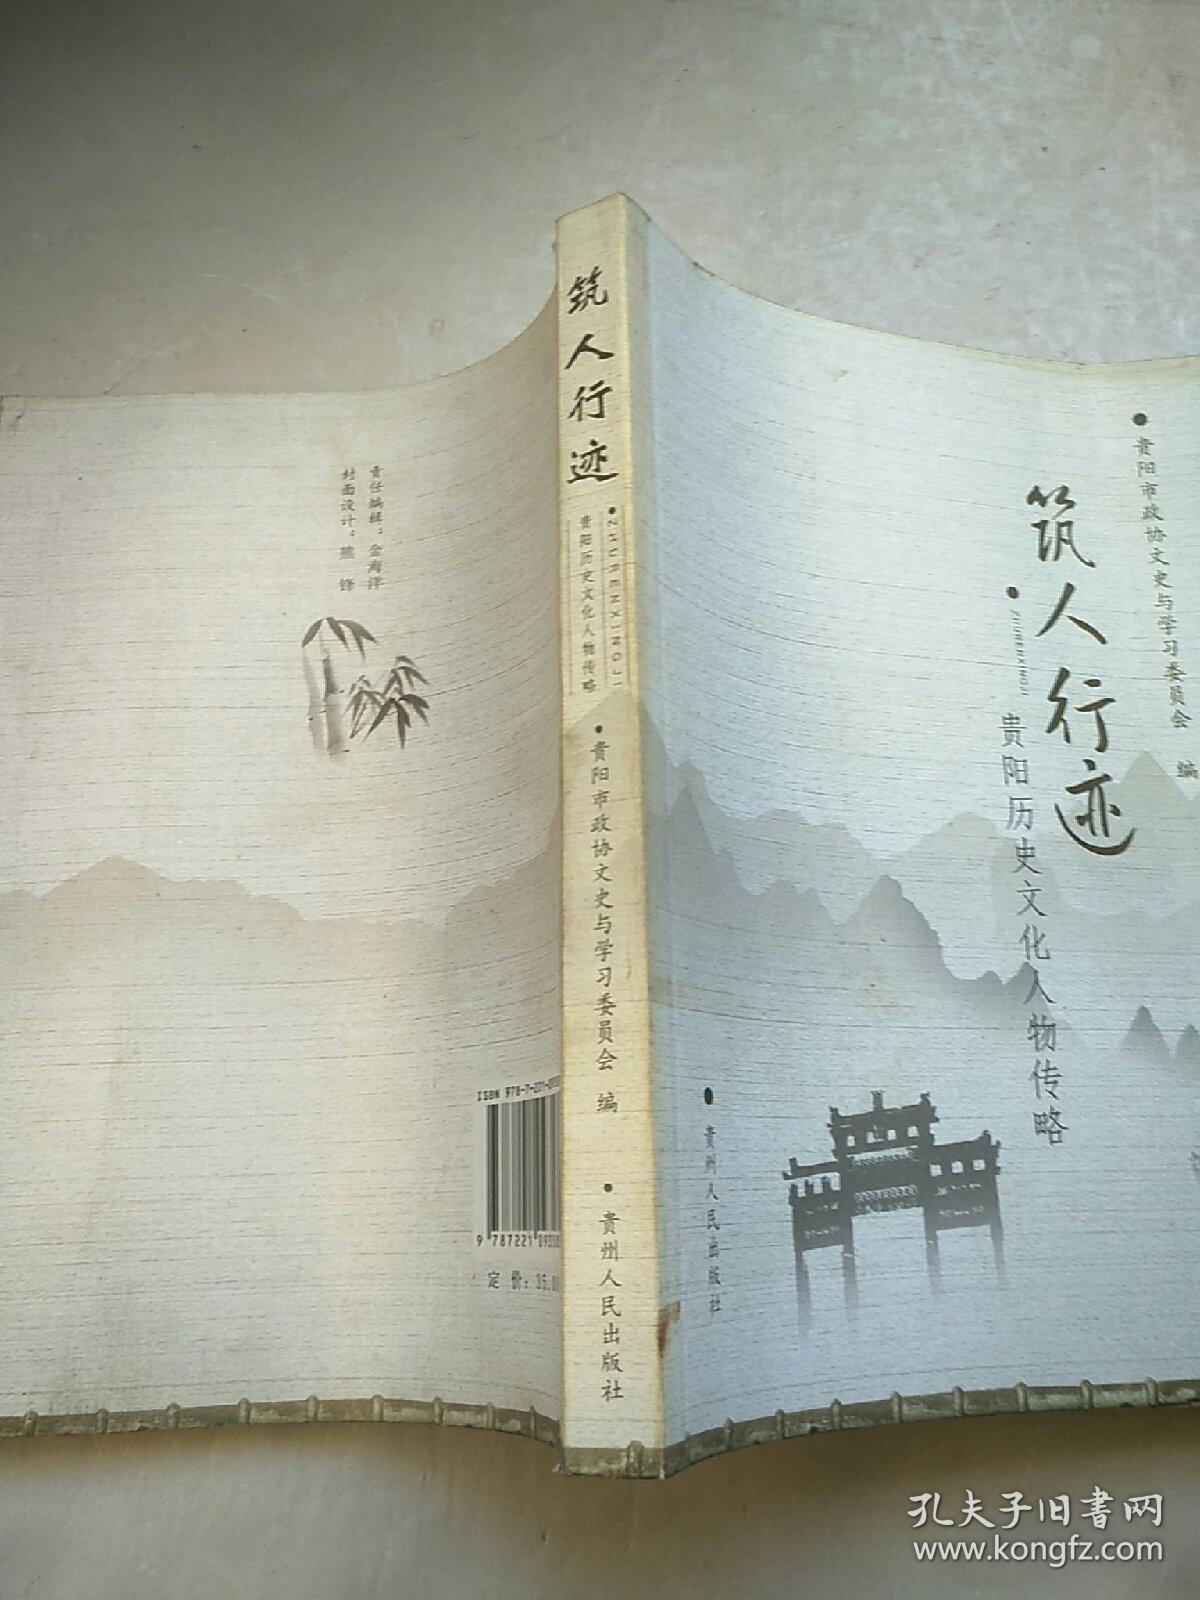 责任编辑：金海洋
封面设计：熊 锋
ISBN 978-7-221-0
9 787221 0
定 价：35.0
筑人行迹
ZHURENXINGJI
贵阳历史文化人物传略
贵阳市政协文史与学习委员会 编
贵州人民出版社
贵阳市政协文史与学习委员会 编
筑人行迹
ZHURENXINGJI
贵阳历史文化人物传略
贵州人民出版社
孔夫子旧书网
www.kongfz.com